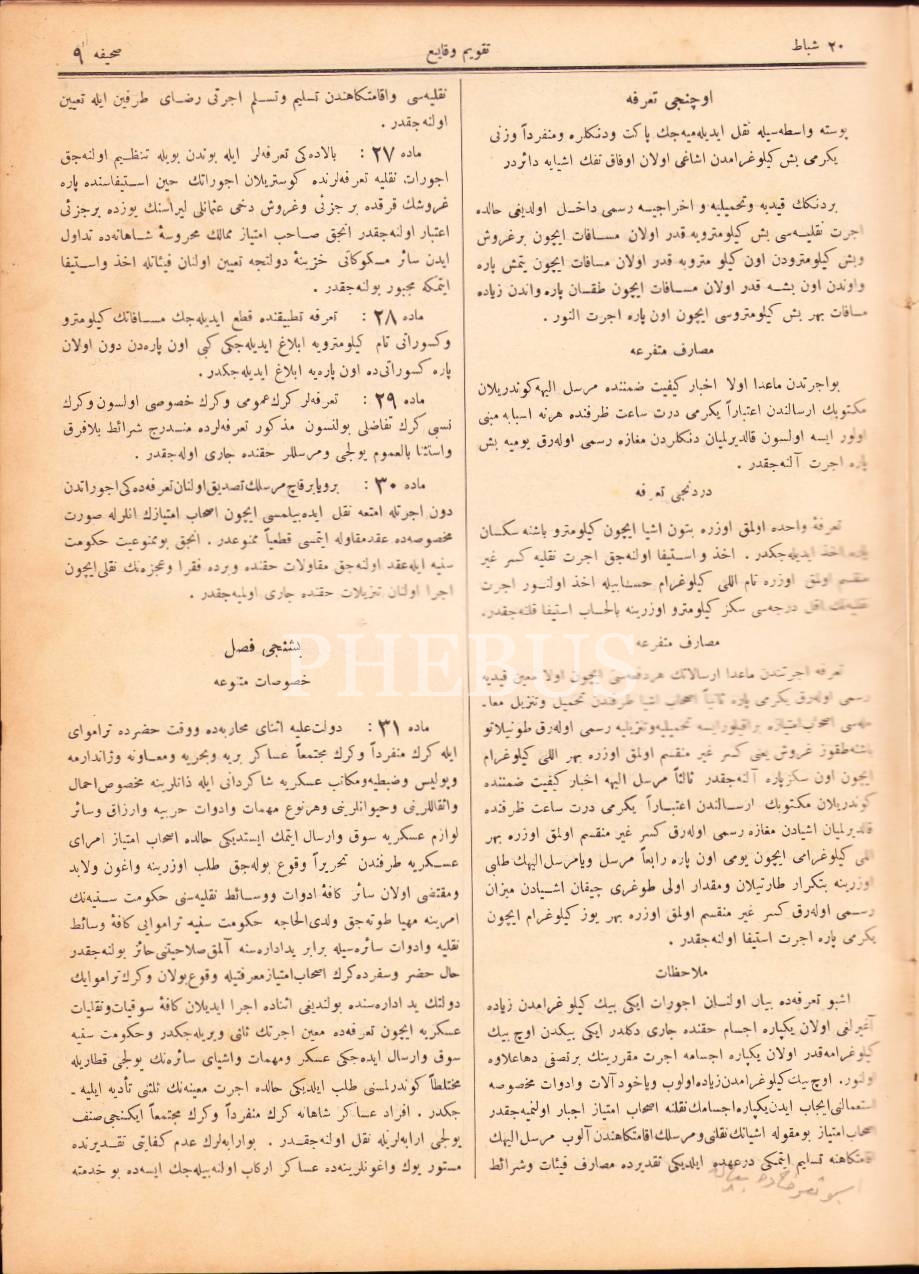 ٢٠ شباط
تقويم وقايع
صحيفه ٩
اوچنجی تعرفه
پوسته واسطه‌سيله نقل ايديله‌ميه‌جك پاكت ودنكلره ومنفرداً وزنی
يكرمی بش كيلوغرامدن اشاغی اولان اوفاق تفك اشيايه دائردر
بر دنكك قيديه وتحميليه و اخراجيه رسمی داخل اولديغی حالده
اجرت نقليه‌سی بش كيلومترويه قدر اولان مسافات ايچون برغروش
وبش كيلومترودن اون كيلو مترويه قدر اولان مسافات ايچون يتمش پاره
واوندن اون بشه قدر اولان مسافات ايچون طقسان پاره واندن زياده
مسافات بهر بش كيلومتروسی ايچون اون پاره اجرت النور .
مصارف متفرعه
بواجرتدن ماعدا اولا اخبار كيفيت ضمننده مرسل اليهه كوندريلان
مكتوبك ارسالندن اعتباراً يكرمی درت ساعت ظرفنده هرنه اسبابه مبنی
اولور ايسه اولسون قالديرلميان دنكلردن مغازه رسمی اوله‌رق يوميه بش
پاره اجرت آلنه‌جقدر .
دردنجی تعرفه
تعرفهٔ واحده اولمق اوزره بتون اشيا ايچون كيلومترو باشنه سكسان
پاره اخذ ايديله‌جكدر . اخذ واستيفا اولنه‌جق اجرت نقليه كسر غير
منقسم اولمق اوزره تام اللی كيلوغرام حسابيله اخذ اولنور اجرت
نقليه‌نك اقل درجه‌سی سكز كيلومترو اوزرينه بالحساب استيفا قلنه‌جقدر.
مصارف متفرعه
تعرفه اجرتندن ماعدا ارسالاتك هردفعه‌سی ايچون اولا معين قيديه
رسمی اوله‌رق يكرمی پاره ثانياً اصحاب اشيا طرفندن تحميل وتنزيل معا-
مله‌سی اصحاب امتيازه براقيلورايسه تحميليه وتنزيليه رسمی اوله‌رق طونيلاتو
باشنه طقوز غروش يعنی كسر غير منقسم اولمق اوزره بهر اللی كيلوغرام
ايچون اون سكز پاره آلنه‌جقدر ثالثاً مرسل اليهه اخبار كيفيت ضمننده
كوندريلان مكتوبك ارسالندن اعتباراً يكرمی درت ساعت ظرفنده
قالديرلميان اشيادن مغازه رسمی اوله‌رق كسر غير منقسم اولمق اوزره بهر
اللی كيلوغرامی ايچون يومی اون پاره رابعاً مرسل ويامرسل اليهك طلبی
اوزرينه بتكرار طارتيلان ومقدار اولی طوغری چيقان اشيادن ميزان
رسمی اوله‌رق كسر غير منقسم اولمق اوزره بهر يوز كيلوغرام ايچون
يكرمی پاره اجرت استيفا اولنه‌جقدر .
ملاحظات
اشبو تعرفه‌ده بيان اولنان اجورات ايكی بيك كيلو غرامدن زياده
آغيرلغی اولان يكپاره اجسام حقنده جاری دكلدر ايكی بيكدن اوچ بيك
كيلوغرامه‌قدر اولان يكپاره اجسامه اجرت مقررينك برنصفی دهاعلاوه
اولنور. اوچ بيك كيلوغرامدن زياده اولوب وياخود آلات وادوات مخصوصه
استعمالنی ايجاب ايدن يكپاره اجسامك نقلنه اصحاب امتياز اجبار اولنميه‌جقدر
اصحاب امتياز بومقوله اشيانك نقلنی ومرسلك اقامتكاهندن آلوب مرسل اليهك
اقامتكاهنه تسليم ايتمكی درعهده ايلديكی تقديرده مصارف فيئات وشرائط
نقليه‌سی واقامتكاهندن تسليم وتسلم اجرتی رضای طرفين ايله تعيين
اولنه‌جقدر .
ماده ٢٧ : بالاده‌كی تعرفه‌لر ايله بوندن بويله تنظيم اولنه‌جق
اجورات نقليه تعرفه‌لرنده كوستريلان اجوراتك حين استيفاسنده پاره
غروشك قرقده بر جزئی وغروش دخی عثمانلی ليراسنك يوزده برجزئی
اعتبار اولنه‌جقدر انجق صاحب امتياز ممالك محروسهٔ شاهانه‌ده تداول
ايدن سائر مسكوكاتی خزينهٔ دولتجه تعيين اولنان فيئاتله اخذ واستيفا
ايتمكه مجبور بولنه‌جقدر .
ماده ٢٨ : تعرفه تطبيقنده قطع ايديله‌جك مسافاتك كيلومترو
وكسوراتی تام كيلومترويه ابلاغ ايديله‌جكی كبی اون پاره‌دن دون اولان
پاره كسوراتی‌ده اون پاره‌يه ابلاغ ايديله‌جكدر .
ماده ٢٩ : تعرفه‌لر كرك عمومی وكرك خصوصی اولسون وكرك
نسبی كرك تفاضلی بولنسون مذكور تعرفه‌لرده مندرج شرائط بلافرق
واستثنا بالعموم يولجی ومرسللر حقنده جاری اوله‌جقدر .
ماده ٣٠ : برويا برقاچ مرسلك تصديق اولنان تعرفه‌ده‌كی اجوراتدن
دون اجرتله امتعه نقل ايده‌بيلمسی ايچون اصحاب امتيازك انلرله صورت
مخصوصه‌ده عقد مقاوله ايتمسی قطعياً ممنوعدر . انجق بوممنوعيت حكومت
سنيه ايله عقد اولنه‌جق مقاولات حقنده وبرده فقرا وعجزه‌نك نقلی ايچون
اجرا اولنان تنزيلات حقنده جاری اولميه‌جقدر .
بشنجی فصل
خصوصات متنوعه
ماده ٣١ : دولت عليه اثنای محاربه‌ده ووقت حضرده تراموای
ايله كرك منفرداً وكرك مجتمعاً عساكر بريه وبحريه ومعاونه وژاندارمه
وپوليس وضبطيه ومكاتب عسكريه شاكردانی ايله ذاتلرينه مخصوص احمال
واثقاللرينی وحيوانلرينی وهرنوع مهمات وادوات حربيه وارزاق وسائر
لوازم عسكريه سوق وارسال ايتمك ايستديكی حالده اصحاب امتياز امرای
عسكريه طرفندن تحريراً وقوع بوله‌جق طلب اوزرينه واغون ولابد
ومقتضی اولان سائر كافهٔ ادوات ووسائط نقليه‌سنی حكومت سنيه‌نك
امرينه مهيا طوته‌جق ولدی الحاجه حكومت سنيه تراموانی كافهٔ وسائط
نقليه وادوات سائره‌سيله برابر يداداره‌سنه آلمق صلاحيتنی حائز بولنه‌جقدر
حال حضر وسفرده كرك اصحاب امتياز معرفتيله وقوع بولان وكرك تراموايك
دولتك يد اداره‌سنده بولنديغی اثناده اجرا ايديلان كافهٔ سوقيات ونقليات
عسكريه ايچون تعرفه‌ده معين اجرتك ثلثی ويريله‌جكدر وحكومت سنيه
سوق وارسال ايده‌جكی عسكر ومهمات واشيای سائره‌نك يولجی قطاريله
مختلطاً كوندرلمسنی طلب ايلديكی حالده اجرت معينه‌نك ثلثنی تأديه ايليه-
جكدر . افراد عساكر شاهانه كرك منفرداً وكرك مجتمعاً ايكنجی صنف
يولجی ارابه‌لريله نقل اولنه‌جقدر . بوارابه‌لرك عدم كفايتی تقديرنده
مستور يوك واغونلرينه‌ده عساكر اركاب اولنه‌بيله‌جك ايسه‌ده بو خدمته
PHEBUS